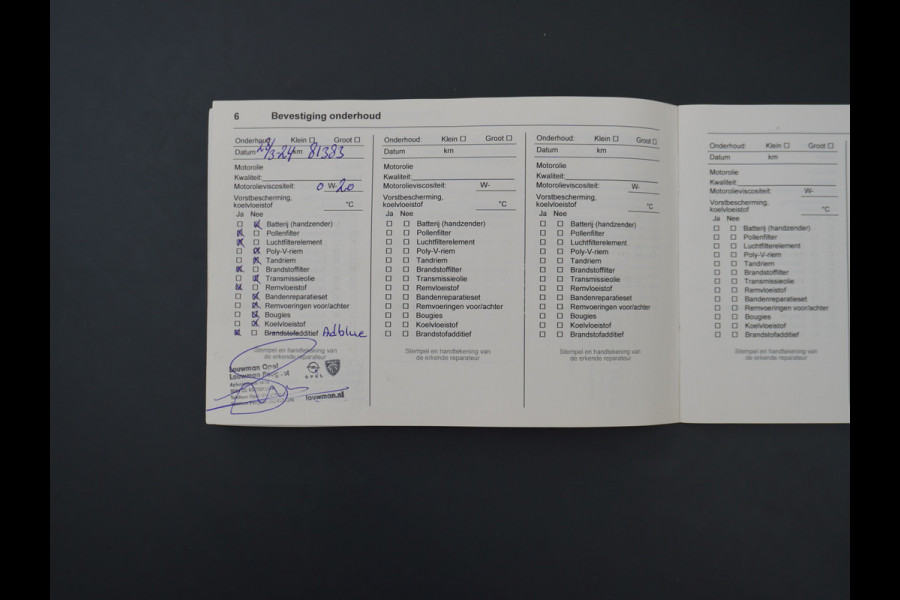 6 Bevestiging onderhoud
Onderhoud: Klein ☐ Groot ☐
Datum 28/3-24 km 81383
Motorolie
Kwaliteit:
Motorolieviscositeit: 0 W-20
Vorstbescherming,
koelvloeistof °C
Ja Nee
Batterij (handzender)
Pollenfilter
Luchtfilterelement
Poly-V-riem
Tandriem
Brandstoffilter
Transmissieolie
Remvloeistof
Bandenreparatieset
Remvoeringen voor/achter
Bougies
Koelvloeistof
Brandstofadditief Adblue
Stempel en handtekening van
de erkende reparateur
Louwman Opel
Louwman
OPEL
louwman.nl
Onderhoud: Klein ☐ Groot ☐
Datum km
Motorolie
Kwaliteit:
Motorolieviscositeit: W-
Vorstbescherming,
koelvloeistof °C
Ja Nee
Batterij (handzender)
Pollenfilter
Luchtfilterelement
Poly-V-riem
Tandriem
Brandstoffilter
Transmissieolie
Remvloeistof
Bandenreparatieset
Remvoeringen voor/achter
Bougies
Koelvloeistof
Brandstofadditief
Stempel en handtekening van
de erkende reparateur
Onderhoud: Klein ☐ Groot ☐
Datum km
Motorolie
Kwaliteit:
Motorolieviscositeit: W-
Vorstbescherming,
koelvloeistof °C
Ja Nee
Batterij (handzender)
Pollenfilter
Luchtfilterelement
Poly-V-riem
Tandriem
Brandstoffilter
Transmissieolie
Remvloeistof
Bandenreparatieset
Remvoeringen voor/achter
Bougies
Koelvloeistof
Brandstofadditief
Stempel en handtekening van
de erkende reparateur
Onderhoud: Klein ☐ Groot ☐
Datum km
Motorolie
Kwaliteit:
Motorolieviscositeit: W-
Vorstbescherming,
koelvloeistof °C
Ja Nee
Batterij (handzender)
Pollenfilter
Luchtfilterelement
Poly-V-riem
Tandriem
Brandstoffilter
Transmissieolie
Remvloeistof
Bandenreparatieset
Remvoeringen voor/achter
Bougies
Koelvloeistof
Brandstofadditief
Stempel en handtekening van
de erkende reparateur